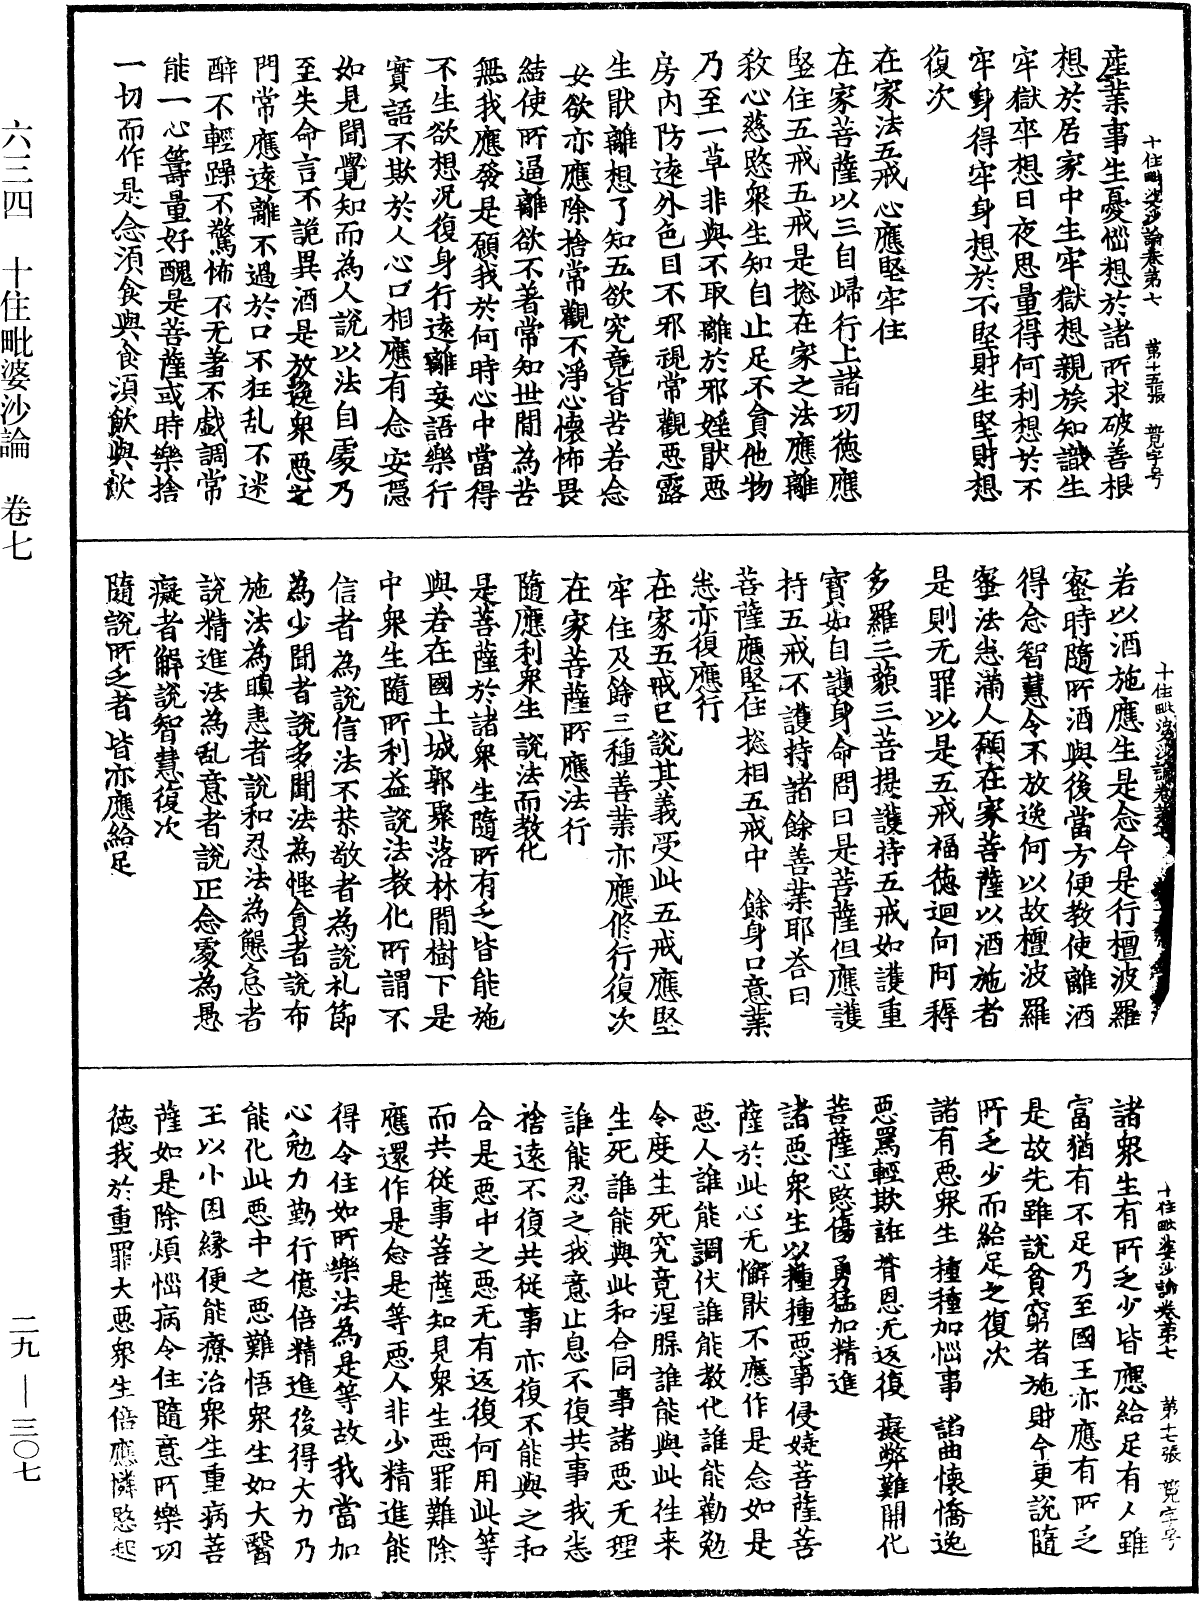 十住毗婆沙論卷第七　第十五張　䒭字号
產業事生憂惱想於諸所求破善根
想於居家中生牢獄想親族知識生
牢獄卒想日夜思量得何利想於不
牢身得牢身想於不堅財生堅財想
復次
在家法五戒　心應堅牢住
在家菩薩以三自歸行上諸功德應
堅住五戒五戒是捴在家之法應離
煞心慈愍衆生知自止足不貪他物
乃至一草非與不取離於邪婬猒惡
房內防遠外色目不邪視常觀惡露
生猒離想了知五欲究竟皆苦若念
妻欲亦應除捨常觀不淨心懷怖畏
結使所逼離欲不著常知世間為苦
無我應發是願我於何時心中當得
不生欲想况復身行遠離妄語樂行
實語不欺於人心口相應有念安隱
如見聞覺知而為人說以法自處乃
至失命言不詭異酒是放逸衆惡之
門常應遠離不過於口不狂乱不迷
醉不輕躁不驚怖不无羞不戲調常
能一心籌量好醜是菩薩或時樂捨
一切而作是念湏食與食湏飲與飲
十住毗婆沙論卷第七
若以酒施應生是念今是行檀波羅
蜜時隨所酒與後當方便教使離酒
得念智慧令不放逸何以故檀波羅
蜜法悉滿人願在家菩薩以酒施者
是則无罪以是五戒福德迴向阿耨
多羅三藐三菩提護持五戒如護重
寶如自護身命問曰是菩薩但應護
持五戒不護持諸餘善業耶荅曰
菩薩應堅住　捴相五戒中　餘身口意業
悉亦復應行
在家五戒已說其義受此五戒應堅
牢住及餘三種善業亦應修行復次
在家菩薩所應法行
隨應利衆生　說法而教化
是菩薩於諸衆生隨所有乏皆能施
與若在國土城郭聚落林間樹下是
中衆生隨所利益說法教化所謂不
信者為說信法不恭敬者為說礼節
為少聞者說多聞法為慳貪者說布
施法為瞋恚者說和忍法為懈怠者
說精進法為乱意者說正念處為愚
癡者解說智慧復次
隨說所乏者　皆亦應給足
十住毗婆沙論卷第七　第十七張　䒭字号
諸衆生有所乏少皆應給足有人雖
富猶有不足乃至國王亦應有所乏
是故先雖說貧窮者施財今更說隨
所乏少而給足之復次
諸有惡衆生　種種加惱事　諂曲懷憍逸
惡罵輕欺誑　背恩无返復　癡弊難開化
菩薩心愍傷　勇猛加精進
諸惡衆生以種種惡事侵嬈菩薩菩
薩於此心无懈猒不應作是念如是
惡人誰能調伏誰能教化誰能勸勉
令度生死究竟涅槃誰能與此往来
生死誰能與此和合同事諸惡无理
誰能忍之我意止息不復共事我悉
捨遠不復共從事亦復不能與之和
合是惡中之惡无有返復何用此等
而共從事菩薩知見衆生惡罪難除
應還作是念是等惡人非少精進能
得令住如所樂法為是等故我當加
心勉力勤行億倍精進後得大力乃
能化此惡中之惡難悟衆生如大醫
王以小因緣便能療治衆生重病菩
薩如是除煩惱病令住隨意所樂功
德我於重罪大惡衆生倍應憐愍起
六三四　十住毗婆沙論　卷七
二九 — 三〇七